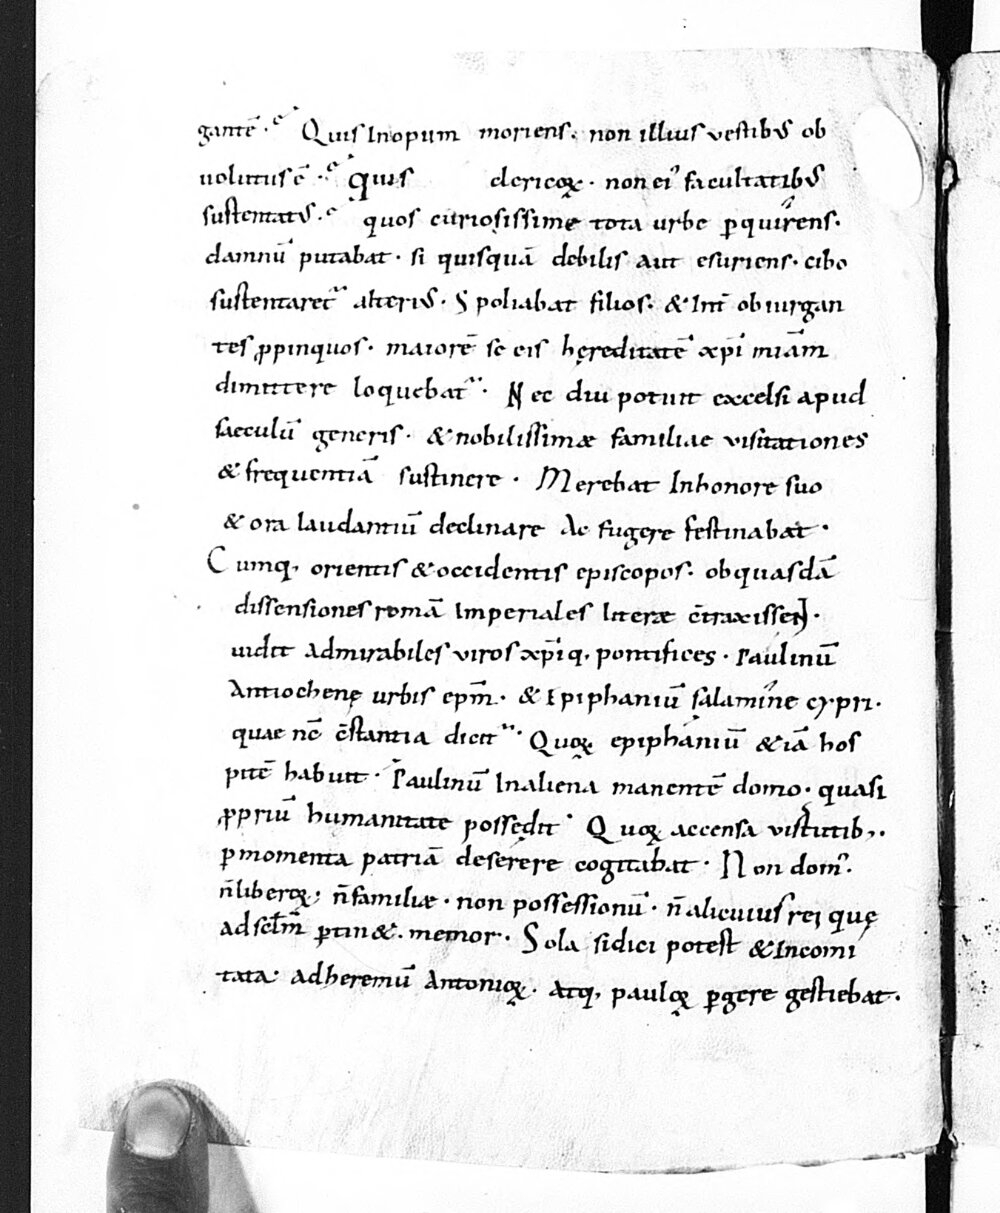 gantē· Quis Inopum moriens· non illius vestibꝰ ob
uolutus ē· Quis clericoꝝ· non eiꝰ facultatibꝰ
sustentatꝰ· quos curiosissimę tota urbe ꝑquirens·
damnū putabat· si quisquā debilis aut esuriens· cibo
sustentaret᷑ alteriꝰ· Spoliabat filios· & Int̄ obiurgan
tes ꝓpinquos· maiorē se eis hęreditatē xp̄i miām
dimittere loquebat᷑· Nec diu potuit excelsi apud
saeculū generis· & nobilissimæ familiae visitationes
& frequentiā sustinere· Merebat Inhonore suo
& ora laudantiū declinare Ac fugere festinabat·
Cumq, orientis & occidentis episcopos· ob quasdā
dissensiones romā Imperiales literæ c̄traxissent·
uidit Admirabiles viros xp̄iq, pontifices· Paulinū
Antiochenę urbis ep̄m· & Epiphaniū salamine cypri·
quae nc̄ c̄stantia dicit᷑· Quoꝝ epiphaniū & iā hos
pitē habuit· Paulinū Inaliena manentē domo· quasi
ꝓpriū humanitate possedit· Quoꝝ accensa virtutib,·
ꝑ momenta patriā deserere cogitabat· Non dom᷑·
n̄ liberoꝝ; n̄ familiæ· non possessionū· n̄ alicuius rei quę
ad sc̄lm̄ ꝑtin&· memor· Sola si dici potest & Incomi
tata· ad heremū Antonioꝝ· atq, pauloꝝ ꝑgere gestiebat·